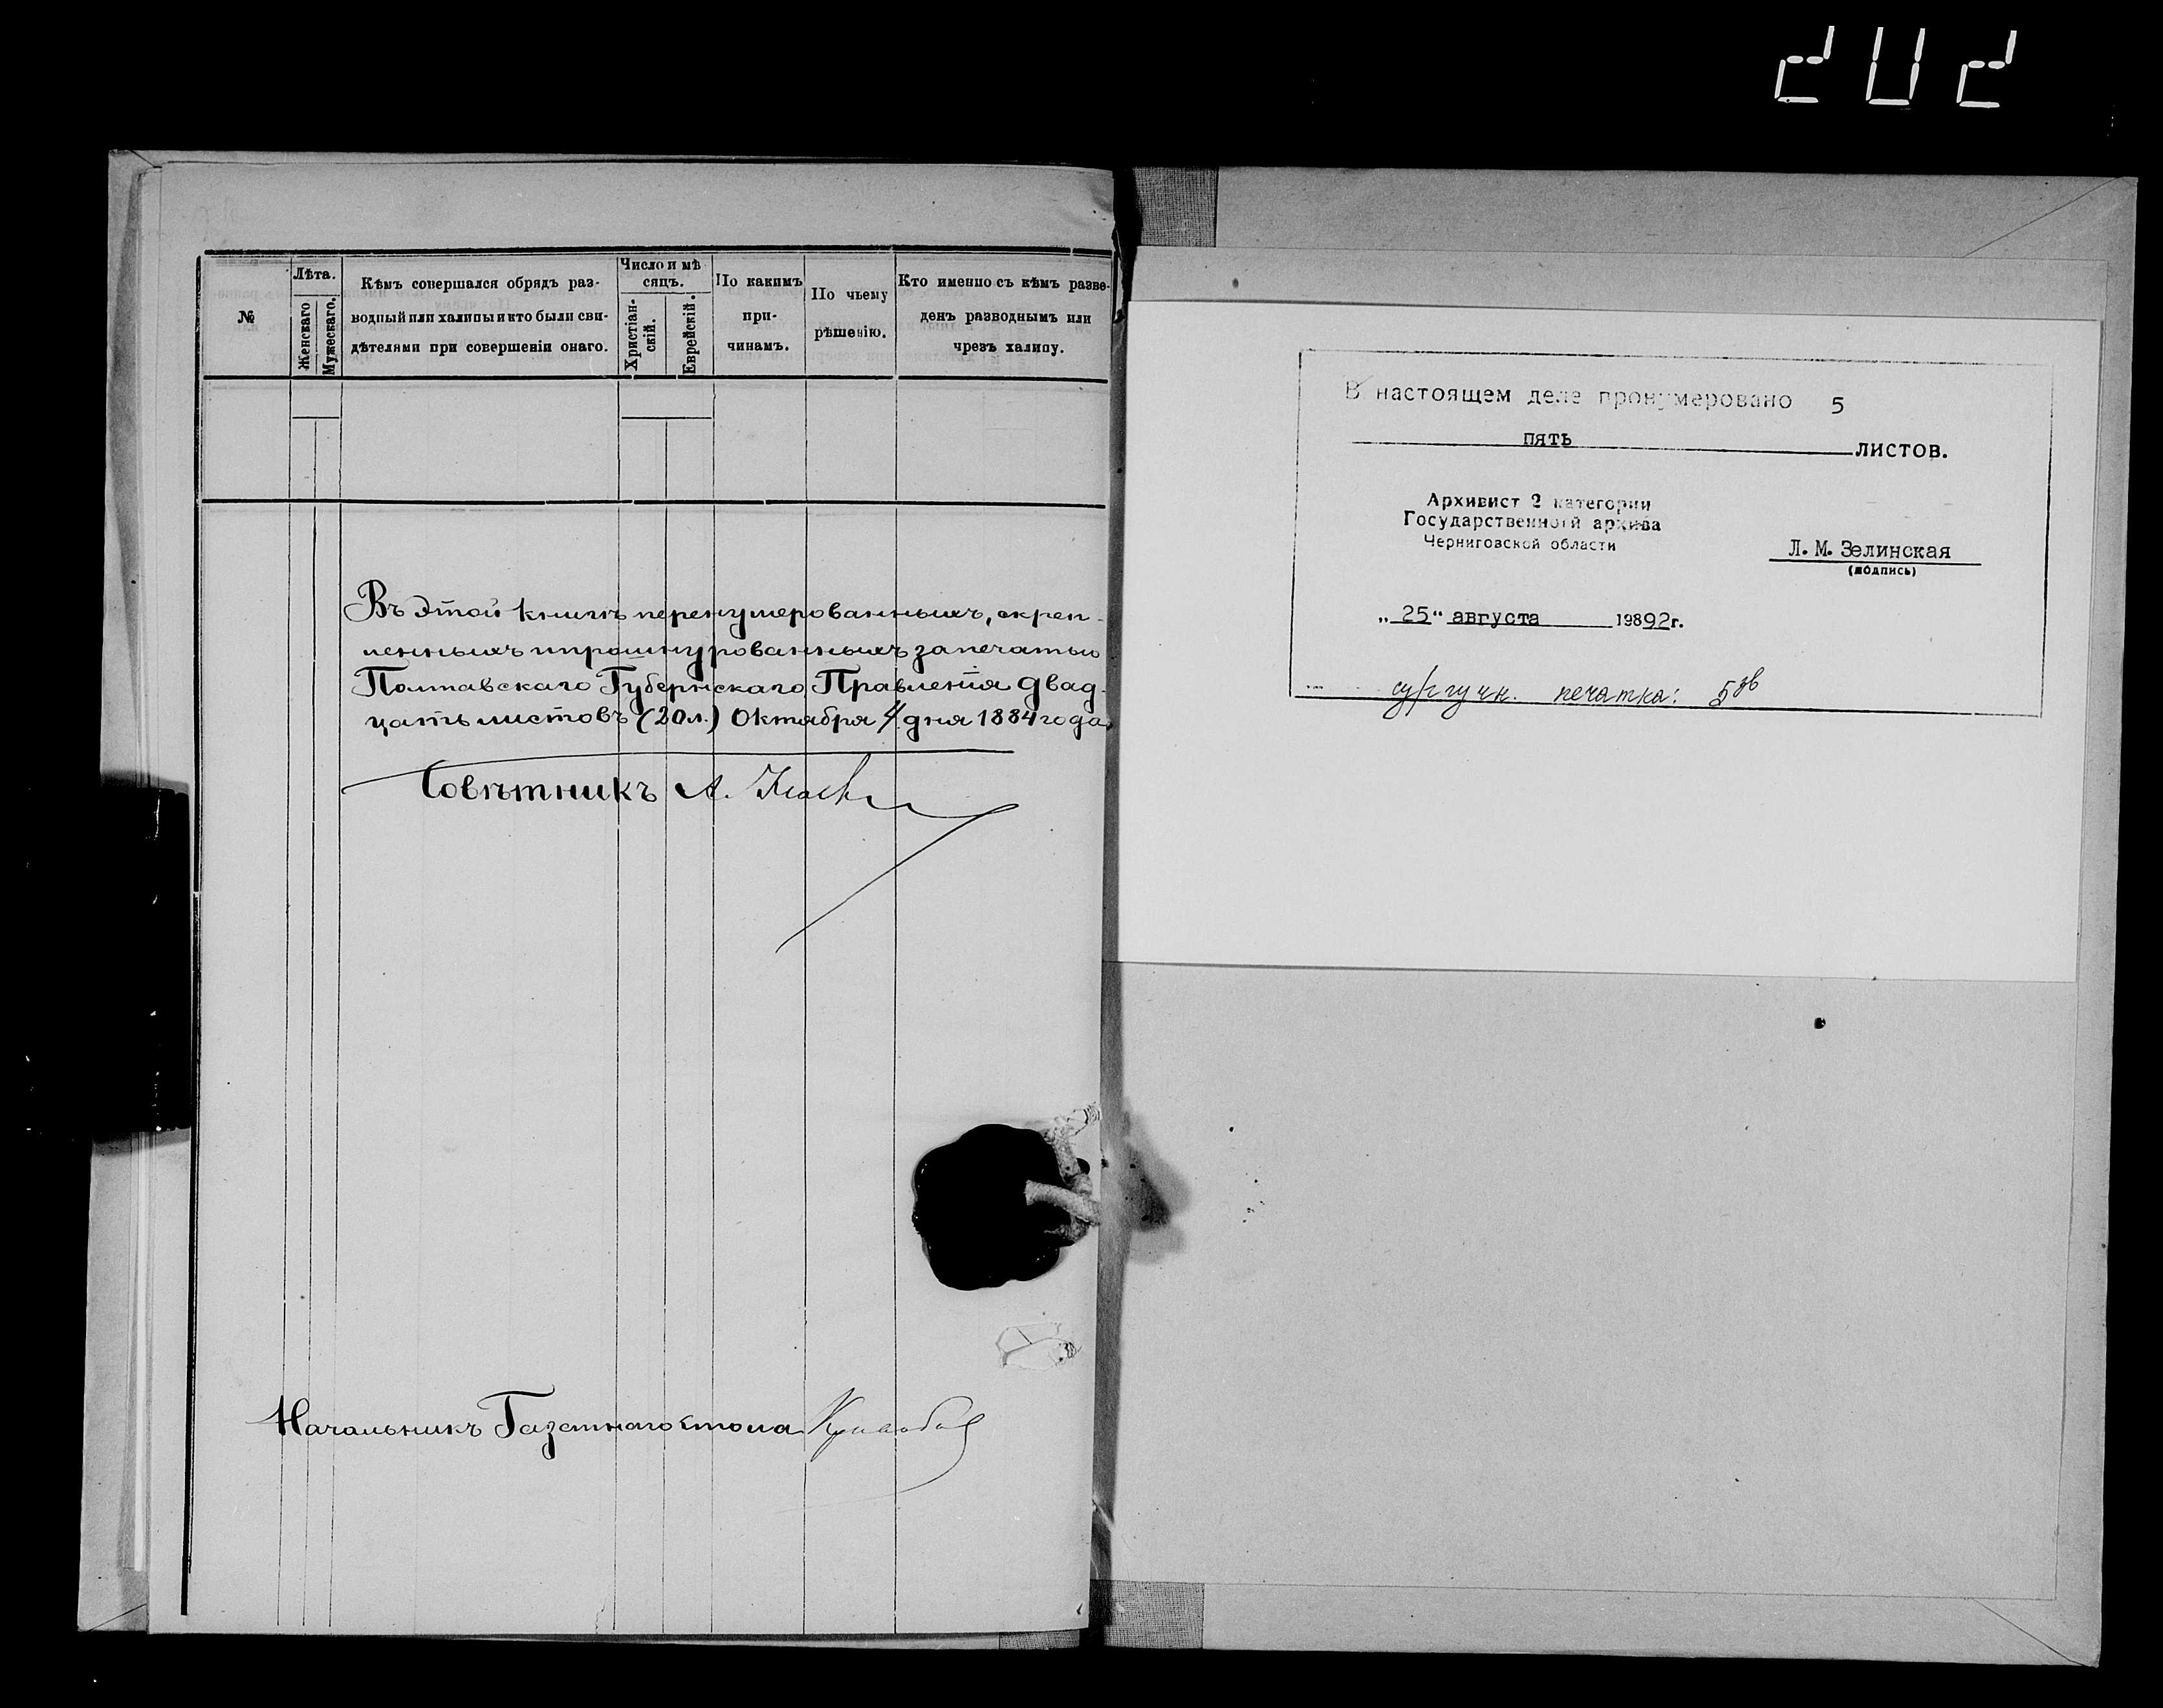 202
№
Лѣта.
Женскаго
Мужескаго.
Кѣмъ совершался обрядъ раз-
водный или халицы и кто были сви-
дѣтелями при совершеніи онаго.
Число и мѣ
сяцъ.
Христіан-
скій.
Еврейскій.
По какимъ
при-
чинамъ.
По чьему
рѣшенію.
Кто именно съ кѣмъ разве-
денъ разводнымъ или
чрезъ халицу.
Въ этой книгѣ перенумерованныхъ, скреп-
ленныхъ и прошнурованныхъ за печатью
Полтавскаго Губернскаго Правленія двад-
цать листовъ (20 л.) Октября 4 дня 1884 года
Совѣтникъ А.
Начальникъ Газетнаго стола
В настоящем деле пронумеровано 5
пять листов.
Архивист 2 категории
Государственной архива
Черниговской области
Л. М. Зелинская
(подпись)
„ 25 “ августа 19892г.
сургучн. печатка: 5